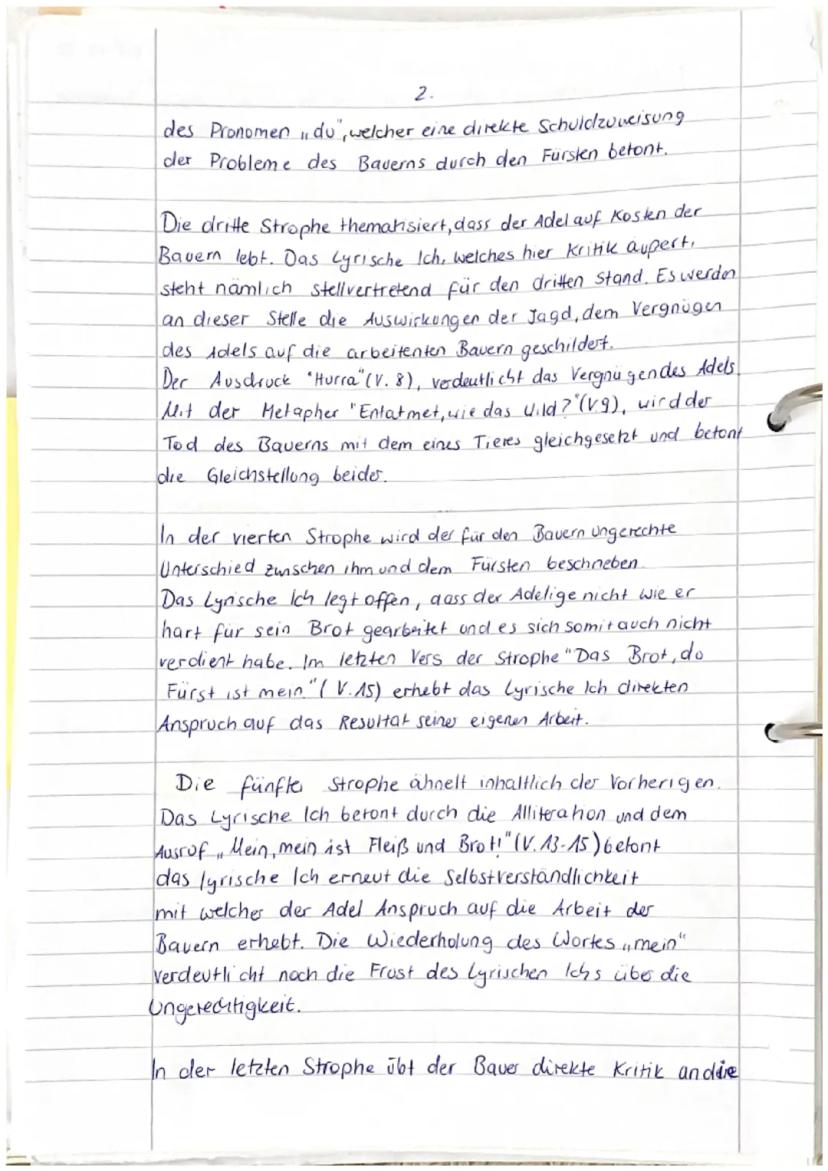 2.
des Pronomen „du", welcher eine direkte Schuldzuweisung
der Probleme des Bauerns durch den Fürsten betont.
Die dritte Strophe thematisiert, dass der Adel auf Kosten der
Bauern lebt. Das Lyrische Ich, welches hier Kritik äußert,
steht nämlich stellvertretend für den dritten Stand. Es werden
an dieser Stelle die Auswirkungen der Jagd, dem Vergnügen
des Adels auf die arbeitenten Bauern geschildert.
Der Ausdruck "Hurra" (V. 8), verdeutlicht das Vergnügen des Adels.
Mit der Metapher "Entatmet, wie das Wild?" (V.9), wird der
Tod des Bauerns mit dem eines Tieres gleichgesetzt und betont
die Gleichstellung beider.
In der vierten Strophe wird der für den Bauern ungerechte
Unterschied zwischen ihm und dem Fürsten beschrieben.
Das Lyrische Ich legt offen, dass der Adelige nicht wie er
hart für sein Brot gearbeitet und es sich somit auch nicht
verdient habe. Im letzten Vers der Strophe "Das Brot, du
Fürst ist mein." (V.15) erhebt das Lyrische Ich direkten
Anspruch auf das Resultat seiner eigenen Arbeit.
Die fünfte Strophe ähnelt inhaltlich der Vorherigen.
Das Lyrische Ich betont durch die Alliteration und dem
Ausruf „Mein, mein ist Fleiß und Brot!" (V.13-15) betont
das lyrische Ich erneut die Selbstverständlichkeit
mit welcher der Adel Anspruch auf die Arbeit der
Bauern erhebt. Die Wiederholung des Wortes „mein"
verdeutlicht noch die Frust des Lyrischen Ichs über die
Ungerechtigkeit.
In der letzten Strophe übt der Bauer direkte Kritik an die